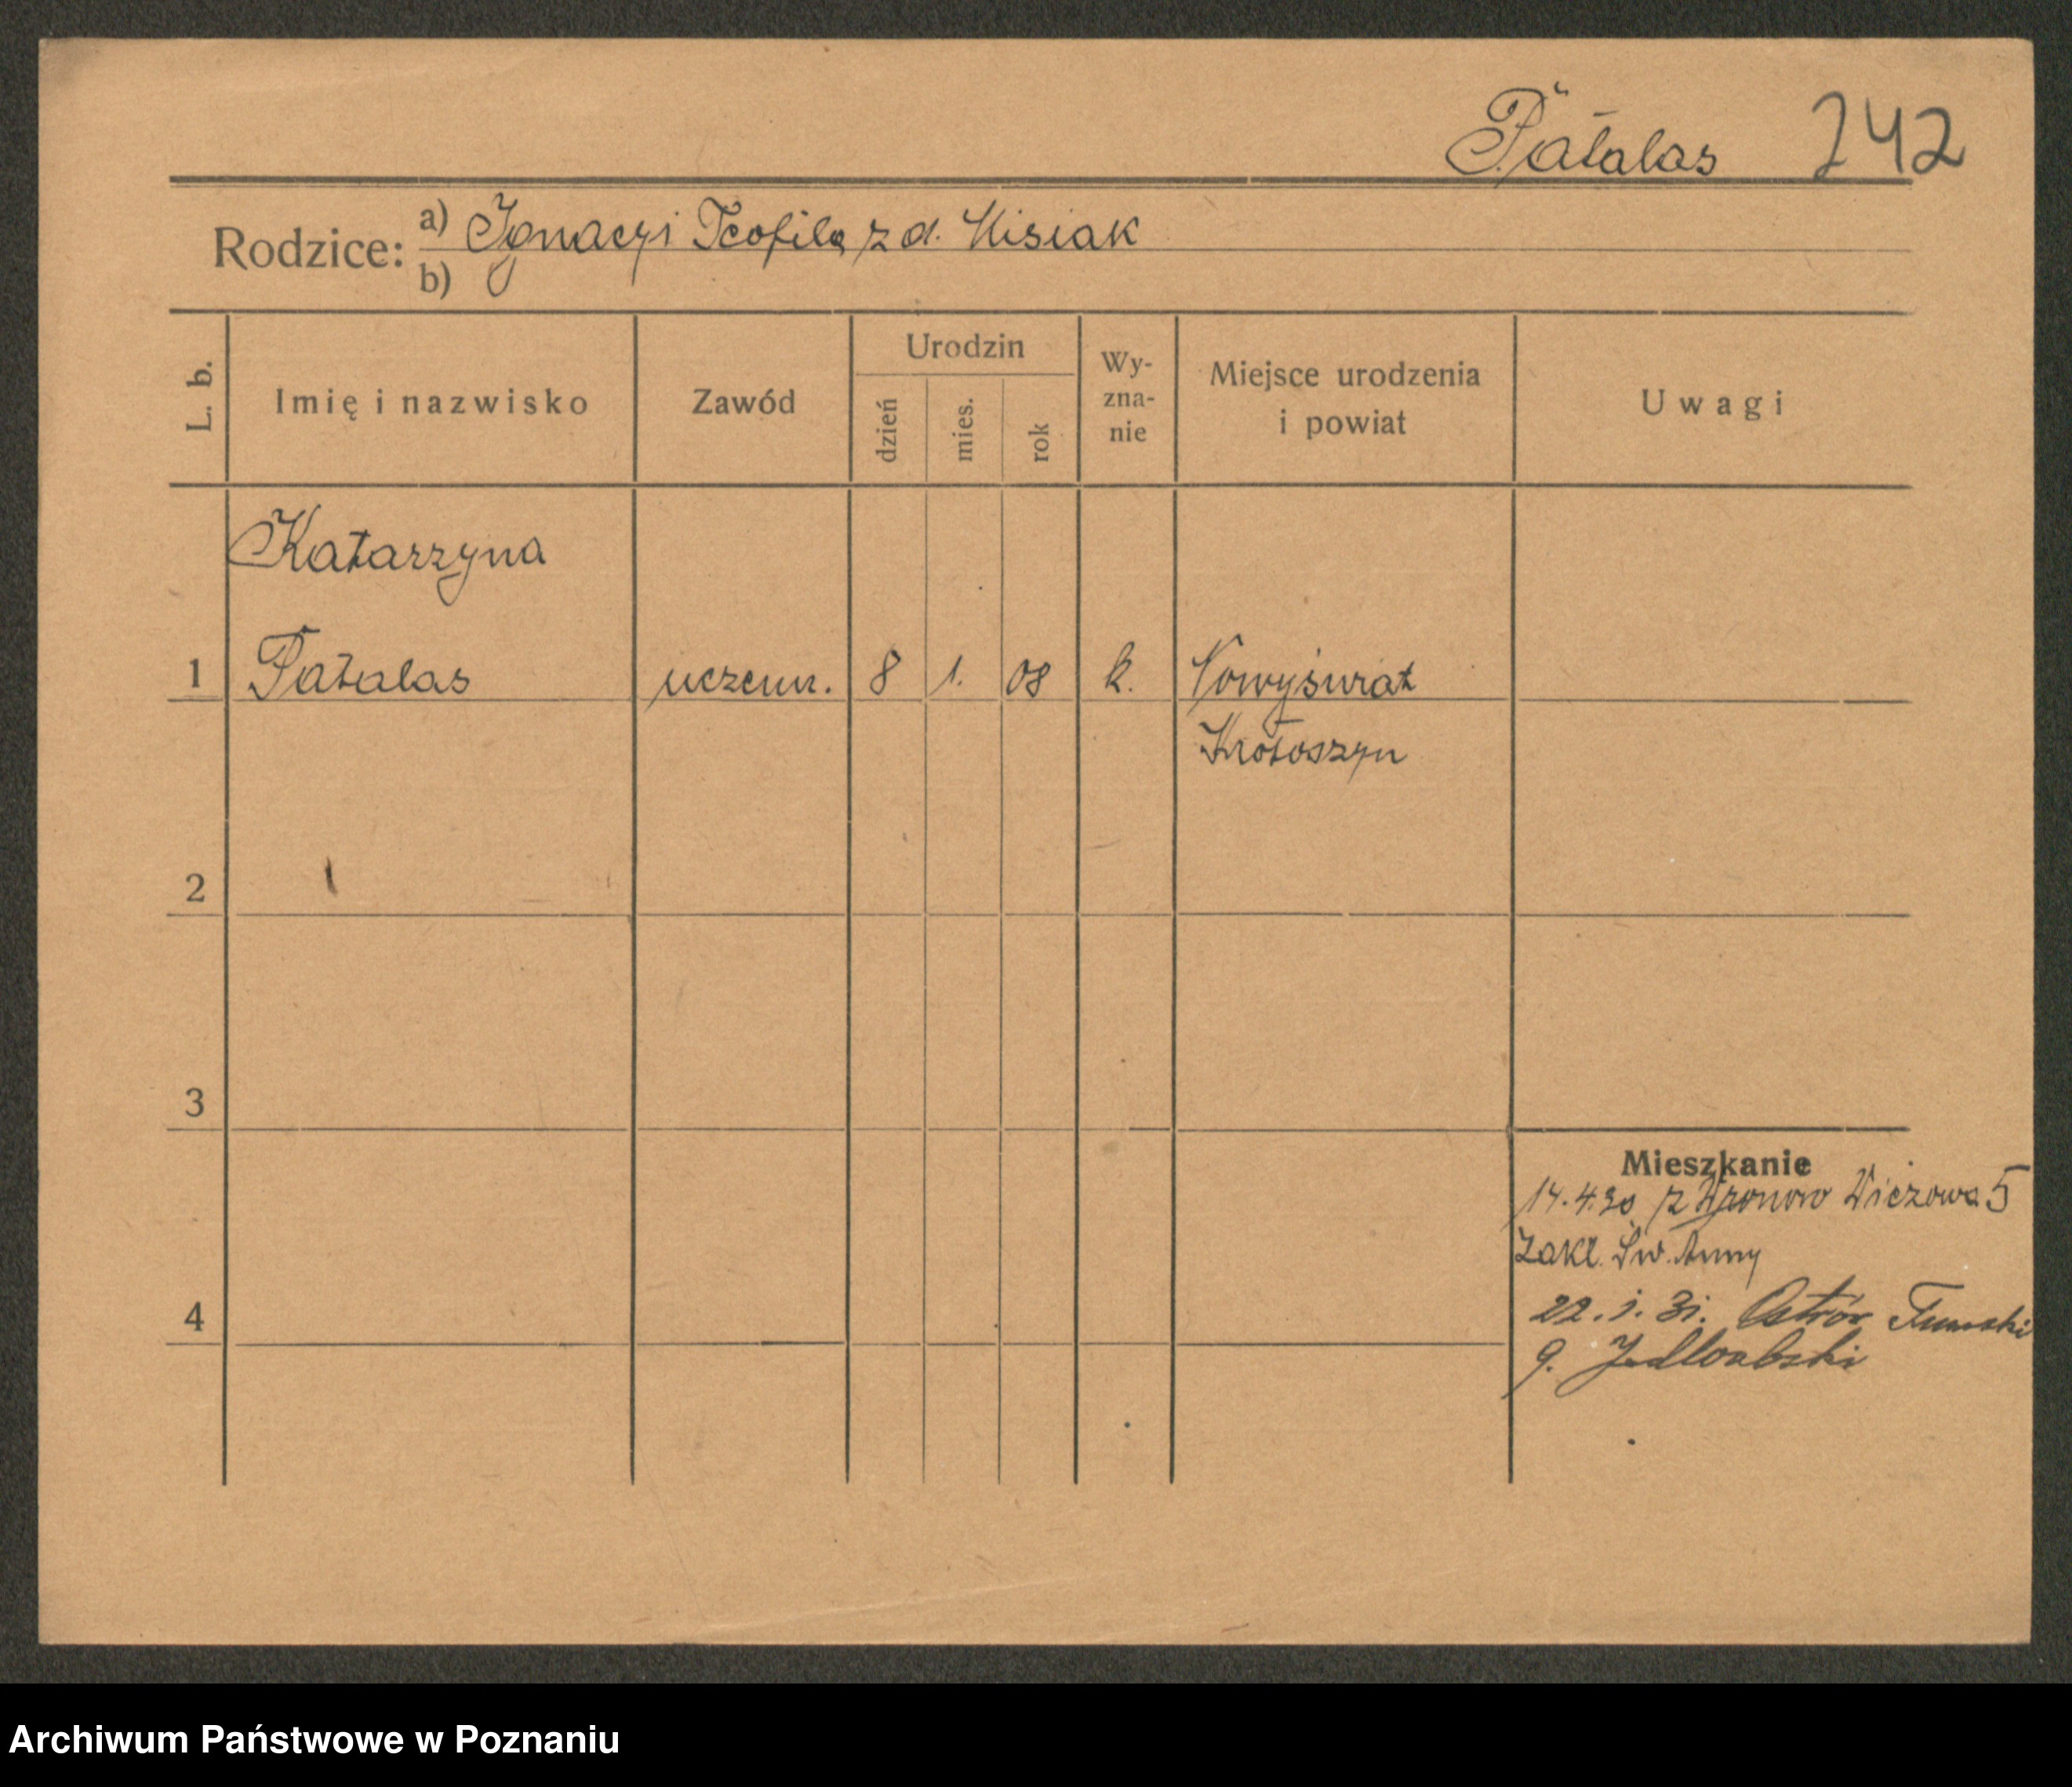 Patalas 242
Rodzice: a) Ignacy i Teofila z d. Misiak
b)
L. b. Imię i nazwisko Zawód Urodzin dzień mies. rok Wy-zna-nie Miejsce urodzenia i powiat Uwagi
Katarzyna
1 Patalas uczenn. 8 1. 08 k. Nowyświat
Krotoszyn
2
3
Mieszkanie
14.4.30 z Wronow Wieżowa 5
Zakł. Św. Anny
4 22.1.31. Ostrów Tumski
9.
Archiwum Państwowe w Poznaniu